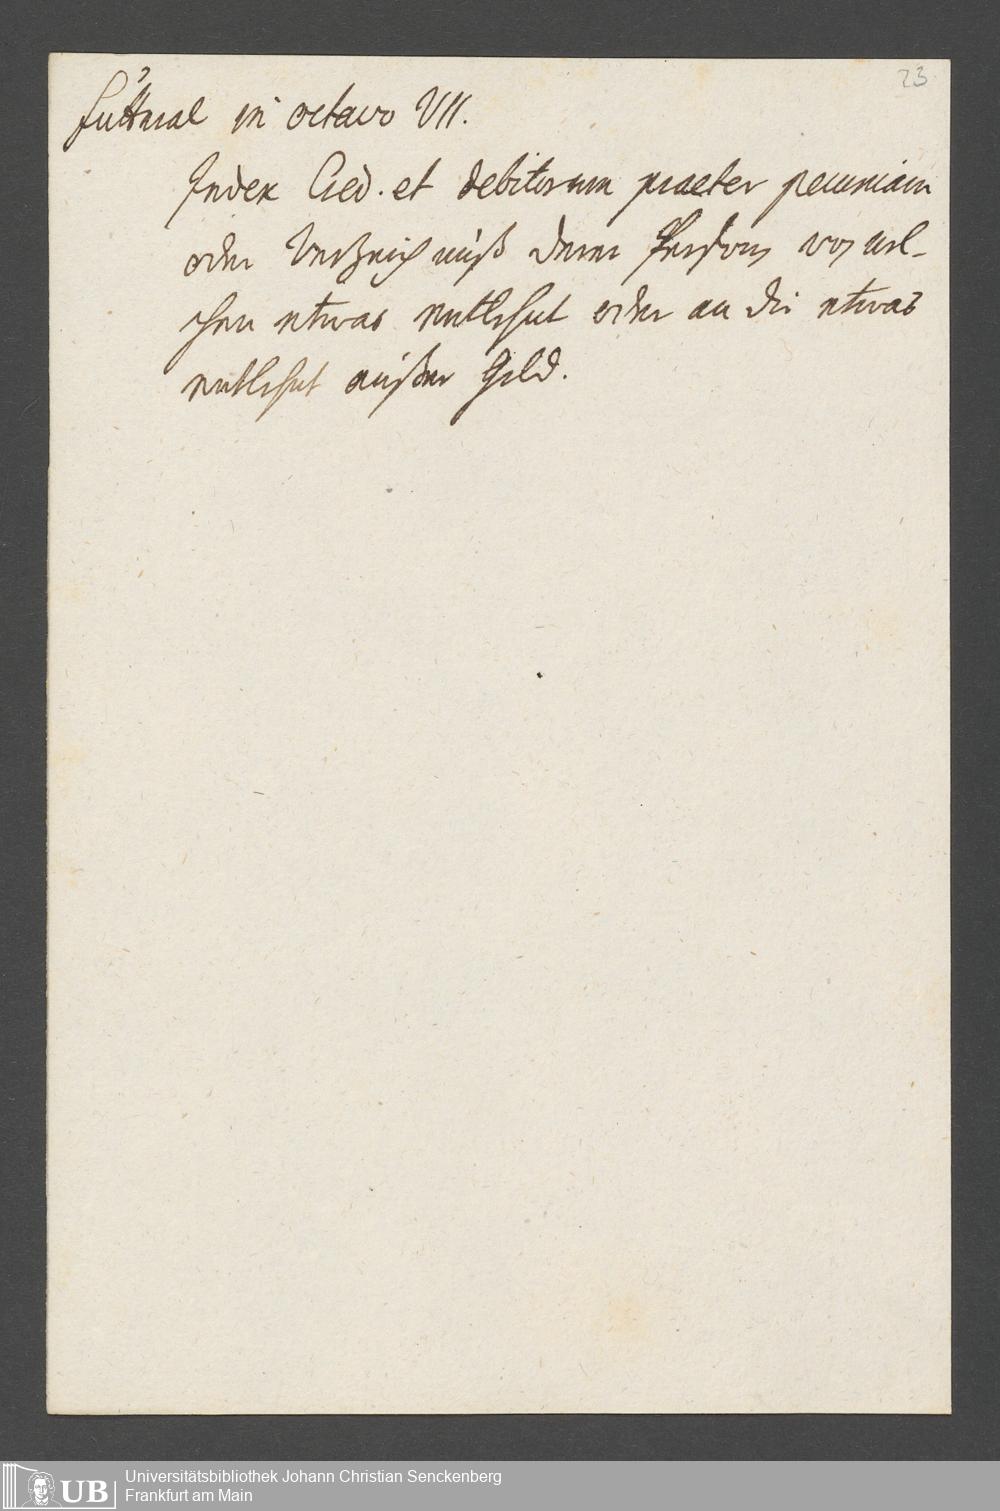 23
Futteral in octavo VII.
Index Cred. et debitorum praeter pecuniam
oder Verzeichniß derer Person von wel-
chen etwas entlehnt oder an die etwas
entlehnt außer Geld.
UB Universitätsbibliothek Johann Christian Senckenberg
Frankfurt am Main